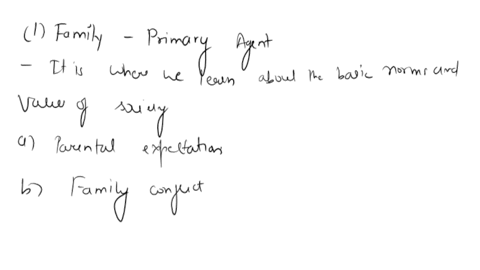 (1) Family - Primary Agent
- It is where we learn about the basic norms and
Value of society
a) Parental expectation
b) Family conflict